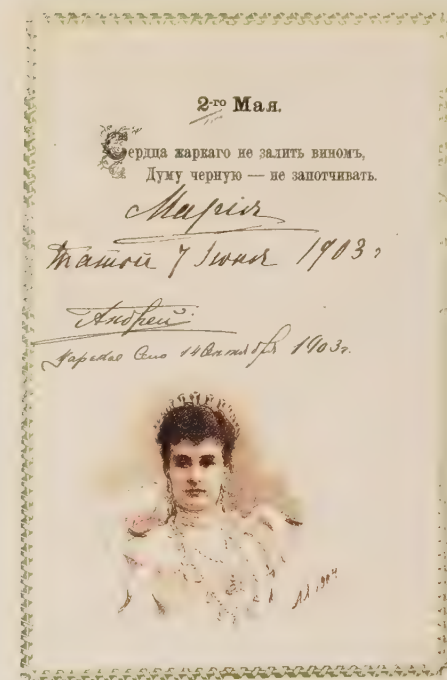 2-го Мая.
Сердца жаркаго не залить виномъ,
Думу черную — не запотчивать.
Марія
Татой 7 Iюня 1903 г
Андрей
Царское Село 14 Октября 1903г.
1904